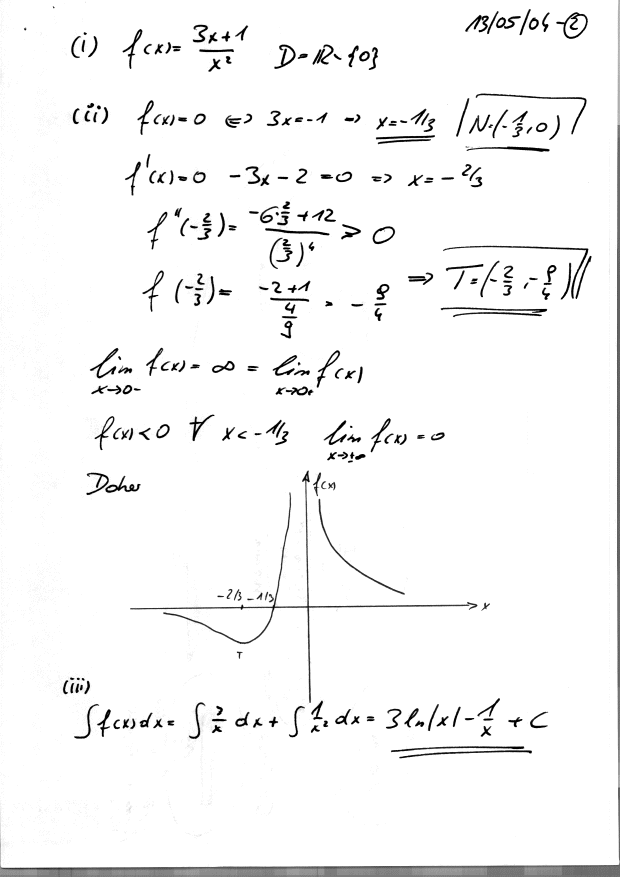 13/05/04-②
(i) f(x)= (3x+1)/x² D=ℝ∖{0}
(ii) f(x)=0 ⇔ 3x=-1 ⇒ x=-1/3 N=(-1/3,0)
f'(x)=0 -3x-2=0 ⇒ x=-2/3
f''(-2/3)= (-6·2/3+12)/(2/3)⁴ > 0
f(-2/3)= (-2+1)/(4/9) = -9/4 ⇒ T=(-2/3,-9/4)
lim x→0- f(x)=∞= lim x→0+ f(x)
f(x)<0 ∀ x<-1/3 lim x→±∞ f(x)=0
Daher
f(x)
-2/3 -1/3
x
T
(iii)
∫f(x)dx= ∫3/x dx+∫1/x² dx= 3ln|x|-1/x+C